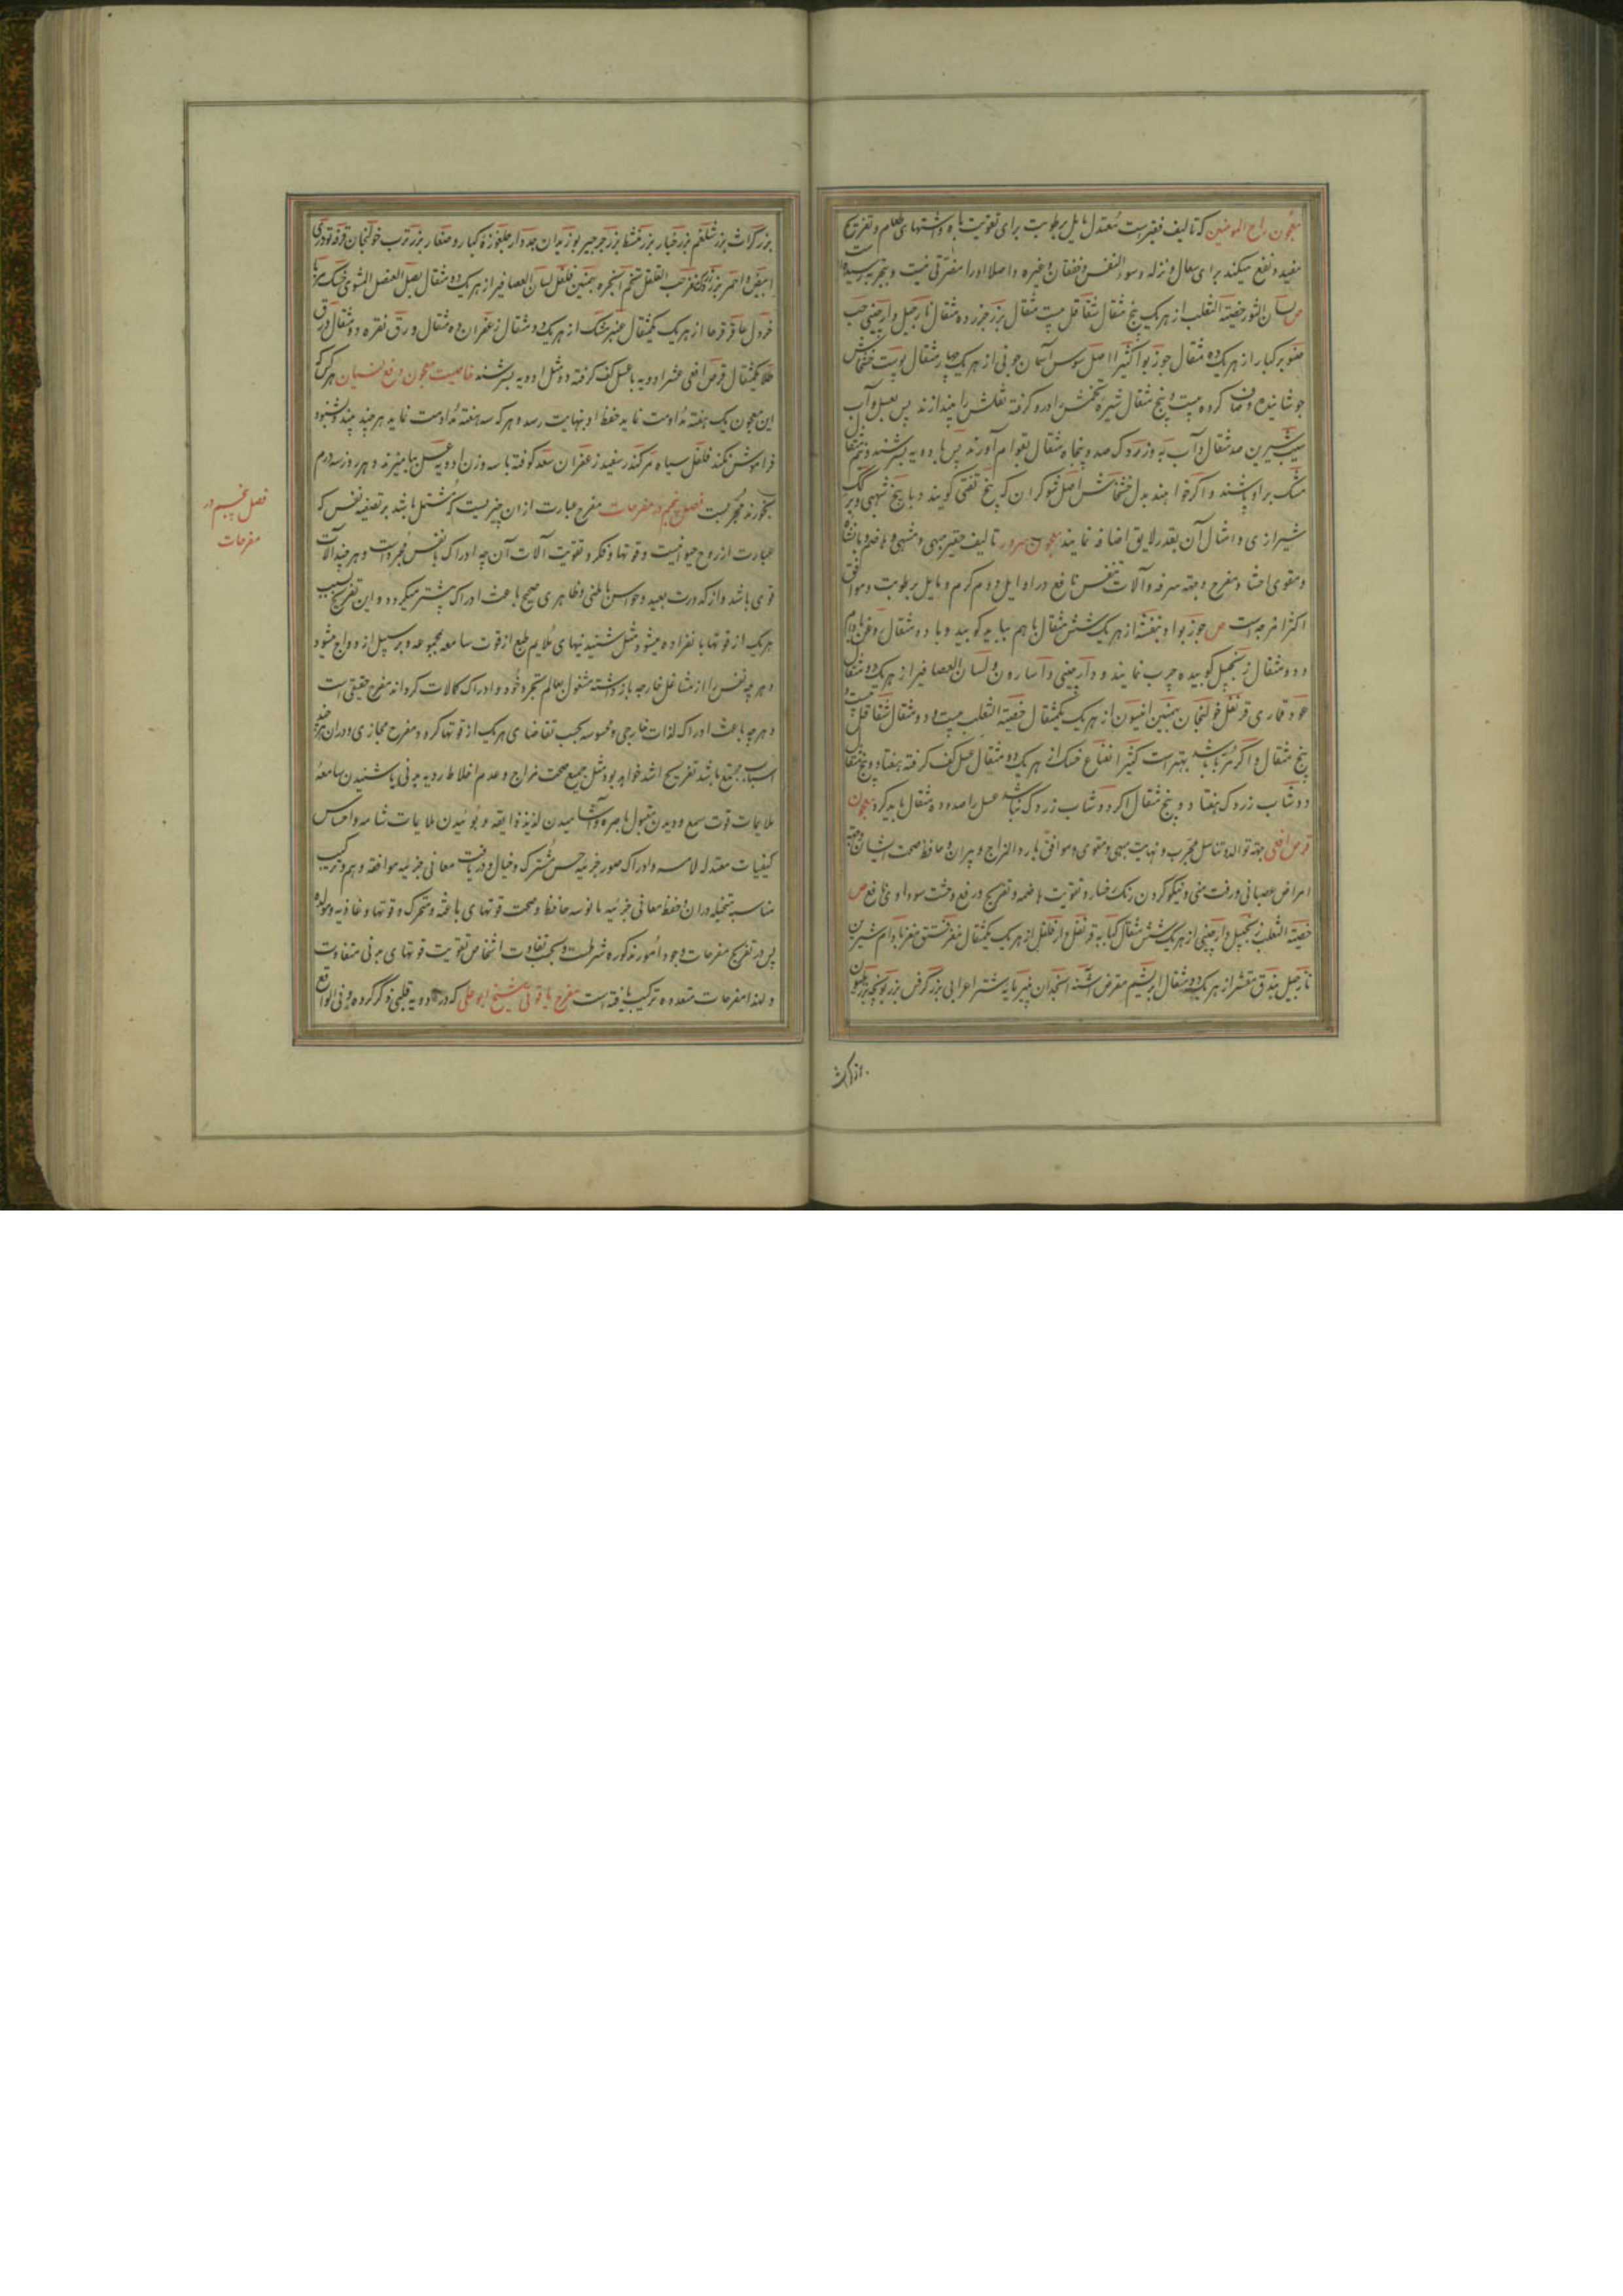 معجون راح المومنین که تالیف فقیر است معتدل مایل برطوبت برای تقویت باه و اشتهای طعام و تفریح
مفید و نفع میکند برای سعال و نزله و سوء النفس و خفقان و غیره و اصلا او را مضرتی نیست و بتجربه رسیده است
ص لسان الثور خصیة الثعلب از هر یک پنج مثقال شقاقل بیست مثقال بزر جزر ده مثقال نارجیل دارچینی حب
صنوبر کبار از هر یک ده مثقال جوز بوا کثیرا اصل سوس آسمان جونی از هر یک چهار مثقال پوست خشخاش
جوشانیده و صاف کرده بیست و پنج مثقال شیره تخمش در او کرده ثفلش را بیندازند پس بعسل و آب
سیب شیرین صد مثقال و آب به و زردک صد و پنجاه مثقال بقوام آورند پس با دویه بسرشند و نیم مثقال
مشک بر او پاشند و اگر خواهند بدل خشخاش اصل شوکران که بیخ تفتی گویند و با بیخ شهمی و برگ
شیرازی و امثال آن بقدر لایق اضافه نمایند معجون سرور تالیف حقیر مبهی و مشهی و هاضم و با نشاه
و مقوی احشا و مفرح و جهة سرفه و آلات تنفس نافع در اوایل دوم گرم و مایل برطوبت و موافق
اکثر امزجه است ص جوز بوا و بنفشه از هر یک شش مثقال با هم بسایه کوبیده و با ده مثقال روغن بادام
و دو مثقال زنجبیل کوبیده چرب نمایند و دارچینی و آسارون و لسان العصافیر از هر یک دو مثقال
عود قماری قرنفل خولنجان بهمنین انیسون از هر یک یکمثقال خصیة الثعلب بیست و دو مثقال شقاقل بیست و
پنج مثقال و اگر تر باشد بهتر است کثیرا نعناع خشک از هر یک ده مثقال عسل کف گرفته هفتاد و پنج مثقال
دوشاب زردک هفتاد و پنج مثقال اگر دوشاب زردک نباشد عسل را صد و ده مثقال باید کرد معجون
قرص افعی جهة توالد و تناسل مجرب و نهایت مبهی و مقوی و موافق بارد المزاج و پیران و حافظ صحت ایشان و جهة
امراض عصبانی و رقت منی و نیکو کردن رنک رخسار و تقویت هاضمه و تفریح و رفع وحشت سوداوی نافع ص
خصیة الثعلب زنجبیل دارچینی از هر یک شش مثقال کبابه قرنفل دارفلفل از هر یک یکمثقال مغز فستق مغز بادام شیرین
نارجیل بندق مقشر از هر یک دو مثقال ابریشم مقرض اشنه انجدان پنیر مایه شتر اعرابی بزر کرفس بزر یونجه بزر هلیون
بزر کراث
بزر کراث بزر شلغم بزر خیار بزر شبت بزر جرجیر بوزیدان جدوار جلغوزه کبار و صغار بزر ترب خولنجان قرفه تودری
ابیض و احمر بزر زردک مغز حب القلقل تخم انجره بهمنین فلفل لسان العصافیر از هر یک دو مثقال بصل العنصل المشوی خشک بزر
خردل عاقرقرحا از هر یک یکمثقال عنبر مشک از هر یک دو مثقال زعفران ده مثقال ورق نقره دو مثقال ورق
طلا یکمثقال قرص افعی عشر ادویه با عسل کف گرفته دو مثل ادویه بسرشند خاصیت معجون در رفع نسیان هر کس که
این معجون یک هفته مداومت نماید حفظ او بنهایت رسد و هر که سه هفته مداومت نماید هر چیند بشنود
فراموش نکند فلفل سیاه مر کندر سفید زعفران سعد کوفته با سه وزن ادویه عسل بیامیزند و هر روز سه درم
بخورند مجربست فصل پنجم در مفرحات مفرح عبارت از آن چیزیست که مشتمل باشد بر تصفیه نفس که
عبارت از روح حیوانیست و قوتها و فکر و تقویت آلات آن چه ادراک با نفس مجرد است و هر چند آلات
قوی باشد و از کدورت بعید و حواس باطنی و ظاهری صحیح باعث ادراک بیشتر میگردد و این تفریح بسبب
هر یک از قوتها بانفراده میشود مثل شنیدنیهای ملایم طبع از قوت سامعه مجموعه و بر سبیل ازدواج میشود
و هر چه نفس را از مشاغل خارجه بازداشته مشغول بعالم تجرد خود و ادراک کمالات گرداند مفرح حقیقی است
و هر چه باعث ادراک لذات خارجی و محسوسه بحسب تقاضای هر یک از قوتها گردد مفرح مجازی و در آن هر چند
اسباب مجتمع باشد تفریح اشد خواهد بود مثل جمیع صحت مزاج و عدم اخلاط ردیه بدنی یا شنیدن سامعه
ملایمات قوت سمع و دیدن مقبول باصره و آشامیدن لذیذ ذایقه و بوئیدن ملایمات شامه و احساس
کیفیات معتدله لامسه و ادراک صور جزئیه حس مشترک و خیال و دریافت معانی جزئیه موافقه وهم و ترکیب
مناسبه متخیله در آن و حفظ معانی جزئیه مانوسه حافظه و صحت قوتهای باعثه و متحرکه و قوتهای غاذیه و مولده
پس در تفریح مفرحات وجود امور مذکوره شرطست و بحسب تفاوت اشخاص تقویت قوتهای بدنی متفاوت
و لهذا مفرحات متعدده ترکیب یافته است مفرح یاقوتی شیخ ابو علی که در ادویه قلبی ذکر کرده و فی الواقع
فصل پنجم در
مفرحات